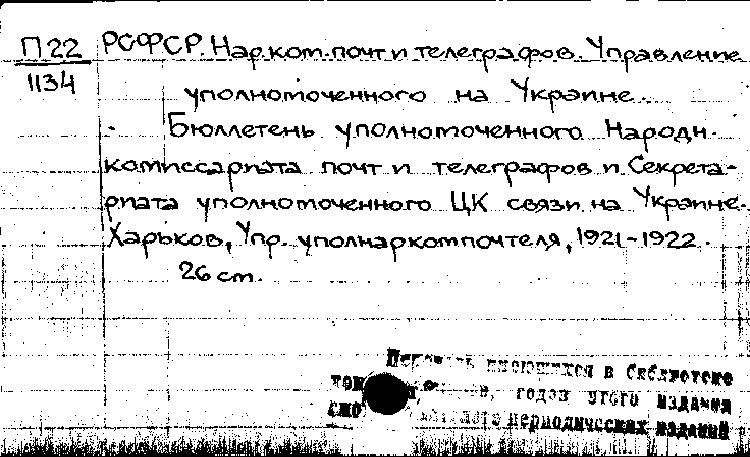 П22 РСФСР. Нар.ком.почт и телеграфов. Управление
1134
уполномоченного на Украине.
Бюллетень уполномоченного Народн.
комиссариата почт и телеграфов и Секрета-
риата уполномоченного ЦК связи на Украине.
Харьков, Упр. уполнаркомпочтеля, 1921-1922.
26 см.
имеющихся в библиотеке
годов этого издания
периодических изданий